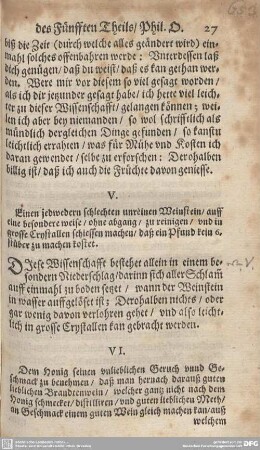 des Fünfften Theils/ Phil. O. 27
biß die Zeit (durch welche alles geändert wird) ein-
mahl solches offenbahren werde: Unterdessen laß
dich genügen/ daß du weist/ daß es kan gethan wer-
den. Were mir vor diesem so viel gesagt worden/
als ich dir jezunder gesagt habe/ ich hette viel leich-
ter zu dieser Wissenschafft/ gelangen können; wei-
len ich aber bey niemanden/ so wol schrifftlich als
mündlich dergleichen Dinge gefunden/ so kanstu
leichtlich errahten/ was für Mühe vnd Kosten ich
daran gewendet/ selbe zu erforschen: Derohalben
billig ist/ daß ich auch die Früchte davon geniesse.
V.
Einen jedwedern schlechten unreinen Weinstein/ auff
eine besondere weise/ ohne abgang/ zu reinigen/ vnd in
grosse Crystallen schiessen machen/ daß ein Pfund kein 6.
stüber zu machen kostet.
Diese Wissenschafft bestehet allein in einem be-
sondern Niederschlag/ darinn sich aller Schlam̄
auff einmahl zu boden sezet/ wann der Weinstein
in wasser auffgelöset ist: Derohalben nichts/ oder
gar wenig davon verlohren gehet/ vnd also leicht-
lich in grosse Crystallen kan gebracht werden.
VI.
Dem Honig seinen unlieblichen Geruch vnnd Ge-
schmack zu benehmen/ daß man hernach darauß guten
lieblichen Brandtenwein/ welcher gantz nicht nach dem
Honig schmecket/ distilliren/ vnd guten lieblichen Meth/
an Geschmack einem guten Wein gleich machen kan/ auß
welchem